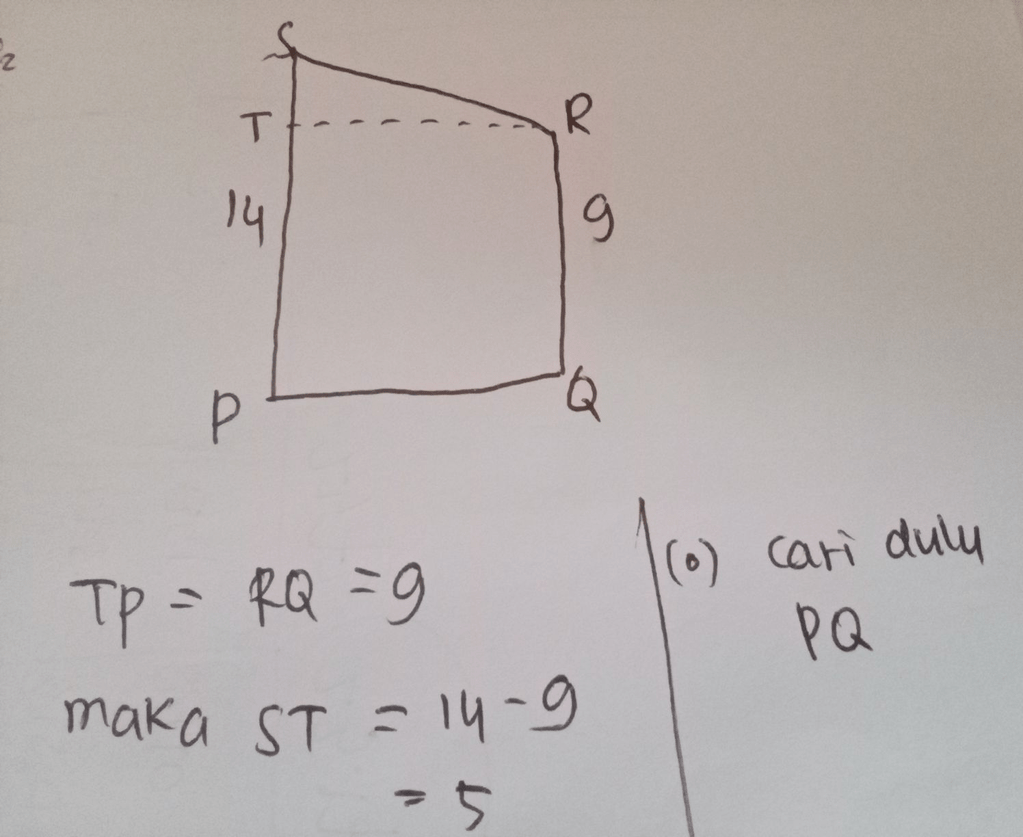 2
S
T
R
14
9
P
Q
Tp = RQ = 9
maka ST = 14 - 9
= 5
(o) cari dulu
PQ